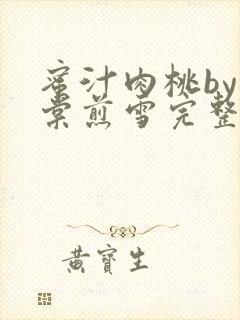 蜜汁肉桃by
棠煎雪完整
黄寶生